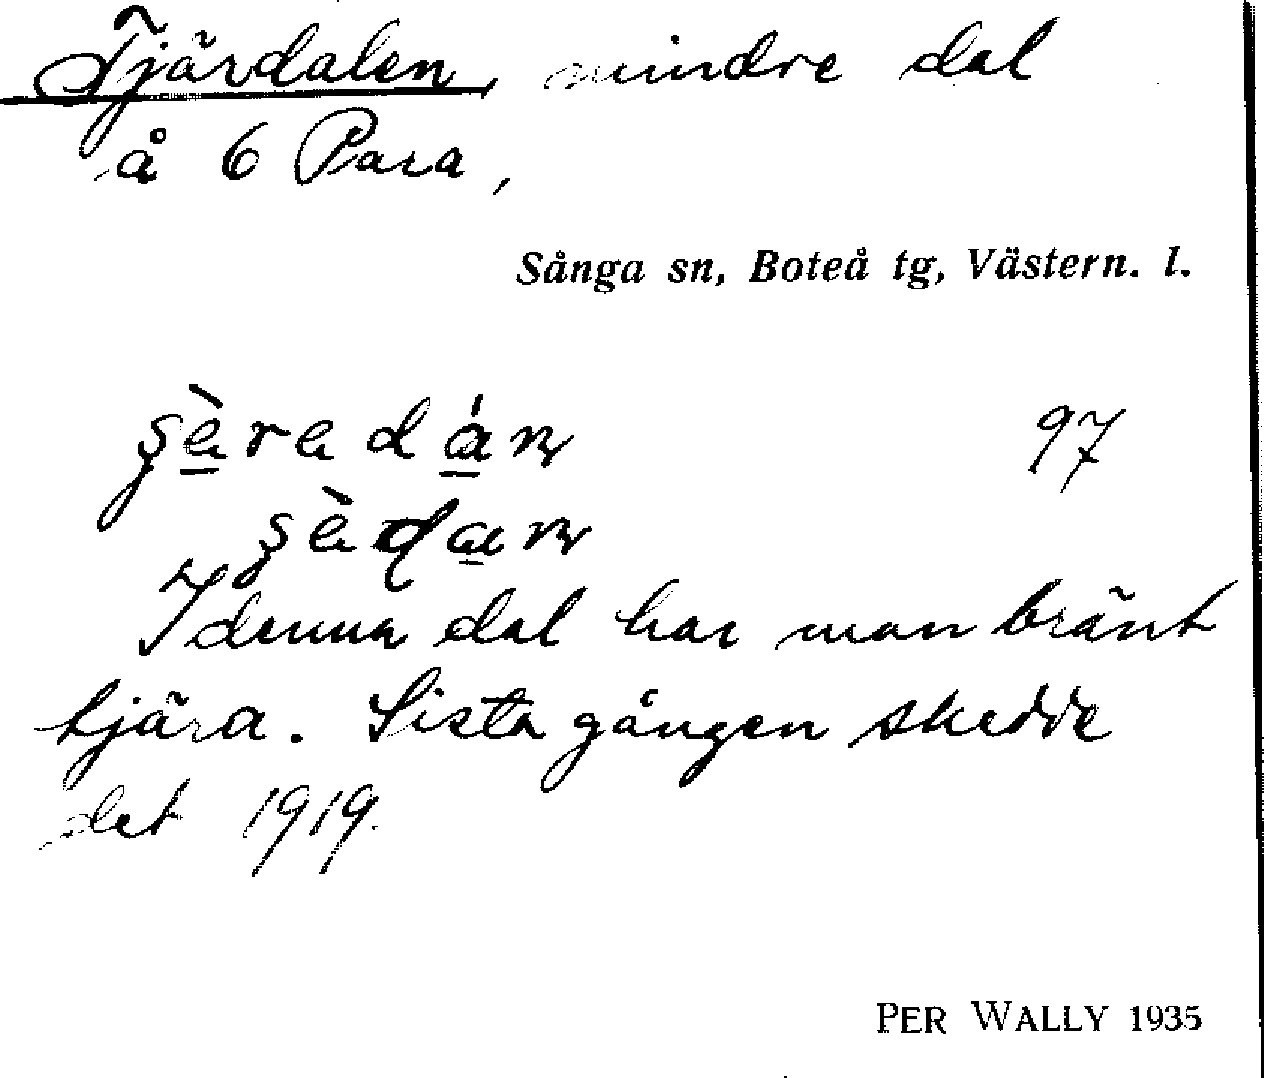 Tjärdalen, mindre dal
å 6 Para,
Sånga sn, Boteå tg, Västern. l.
97
I denna dal har man bränt
tjära. Sista gången skedde
det 1919.
PER WALLY 1935